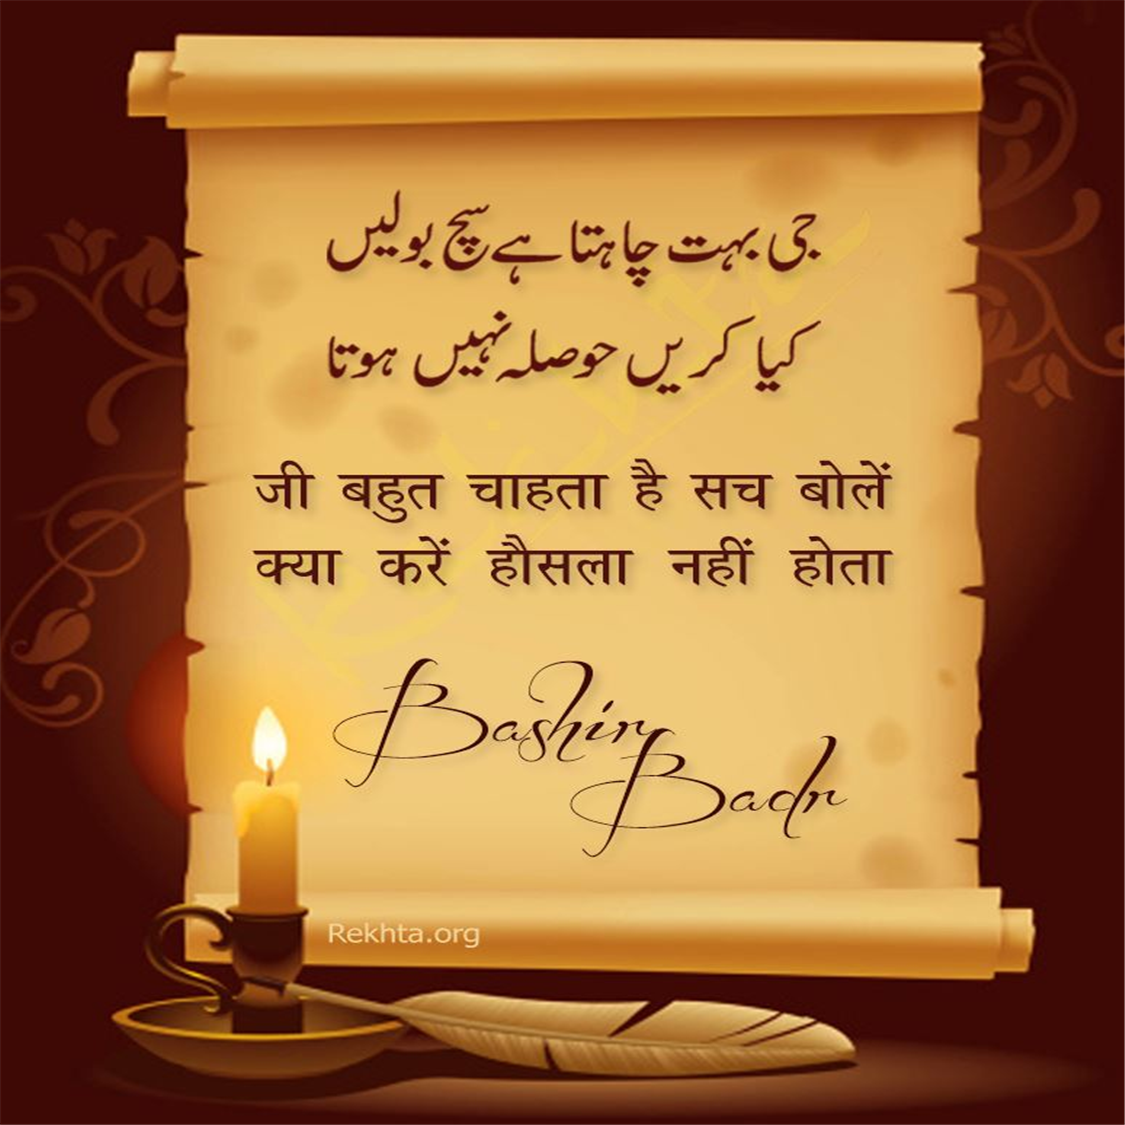 جی بہت چاہتا ہے سچ بولیں
کیا کریں حوصلہ نہیں ہوتا
जी बहुत चाहता है सच बोलें
क्या करें हौसला नहीं होता
Bashir
Badr
Rekhta.org